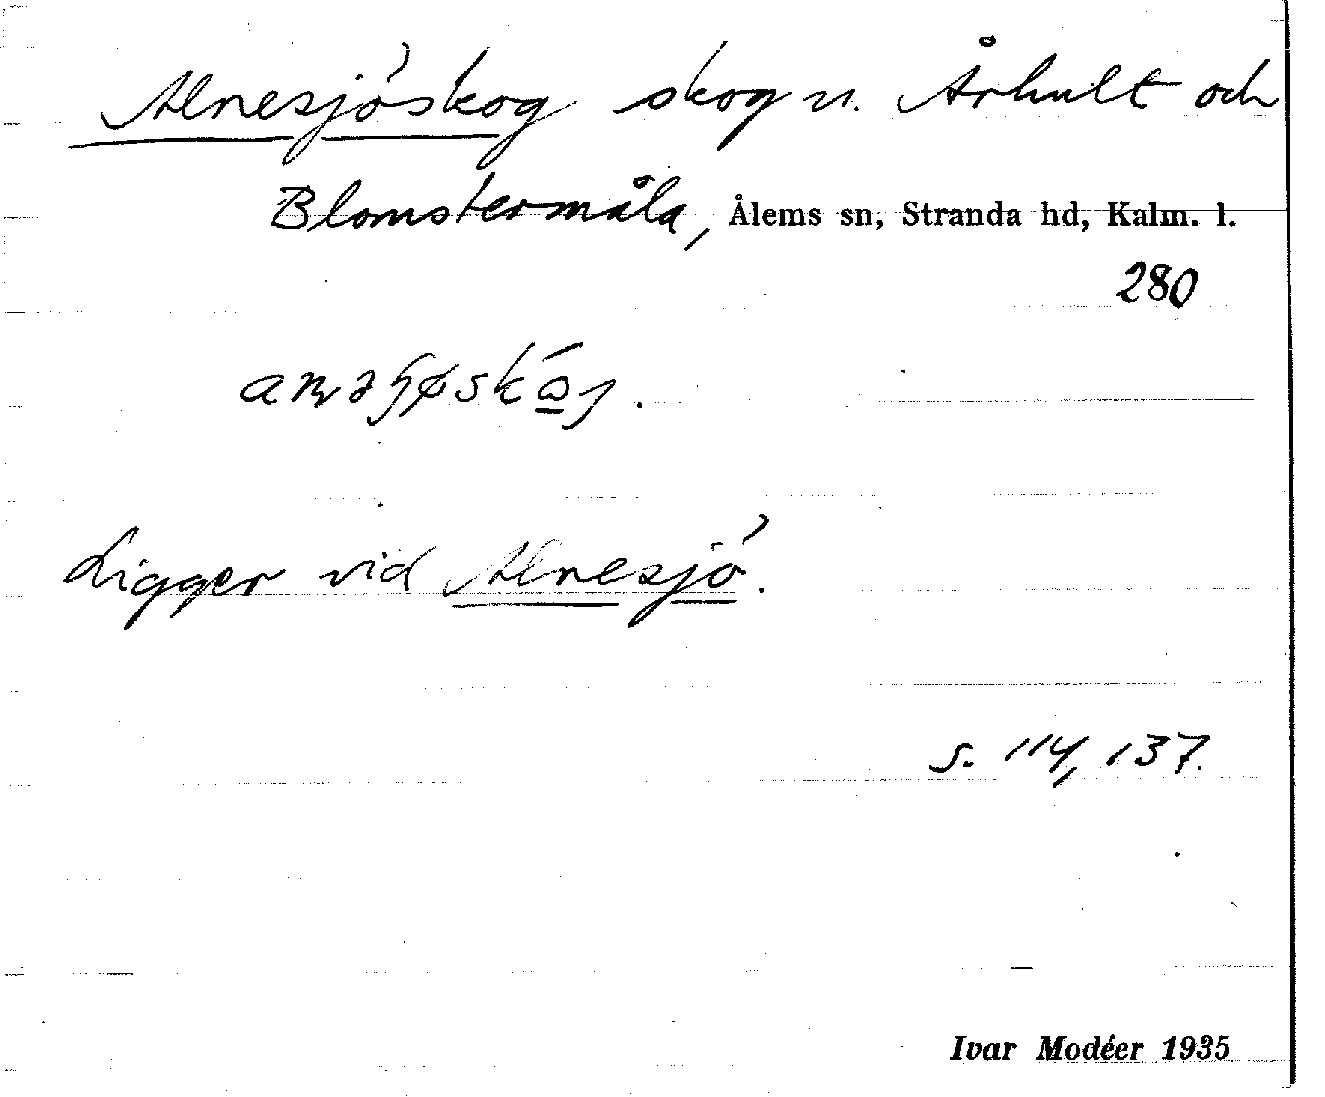 Alnesjöskog skog u. Århult och
Blomstermåla, Ålems sn, Stranda hd, Kalm. l.
280
Ligger vid Alnesjö.
s. 114, 137.
Ivar Modéer 1935